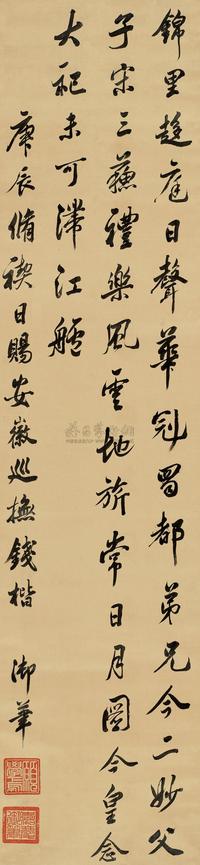 錦里趨庭日聲華冠蜀都弟兄今二妙父
子宋三蘇禮樂風雲地旂常日月圖今皇念
大祀未可滯江艫
庚辰脩禊日賜安徽巡撫錢楷
御筆